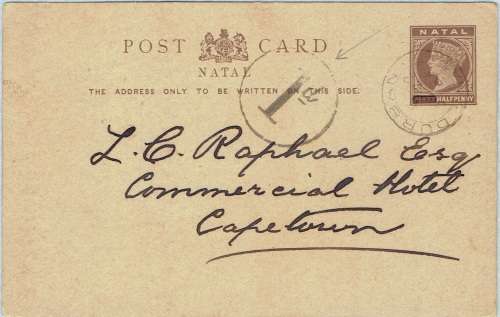 POST CARD
NATAL
THE ADDRESS ONLY TO BE WRITTEN ON THIS SIDE.
NATAL
HALFPENNY
DURBAN
1
L. C. Raphael Esq
Commercial Hotel
Capetown